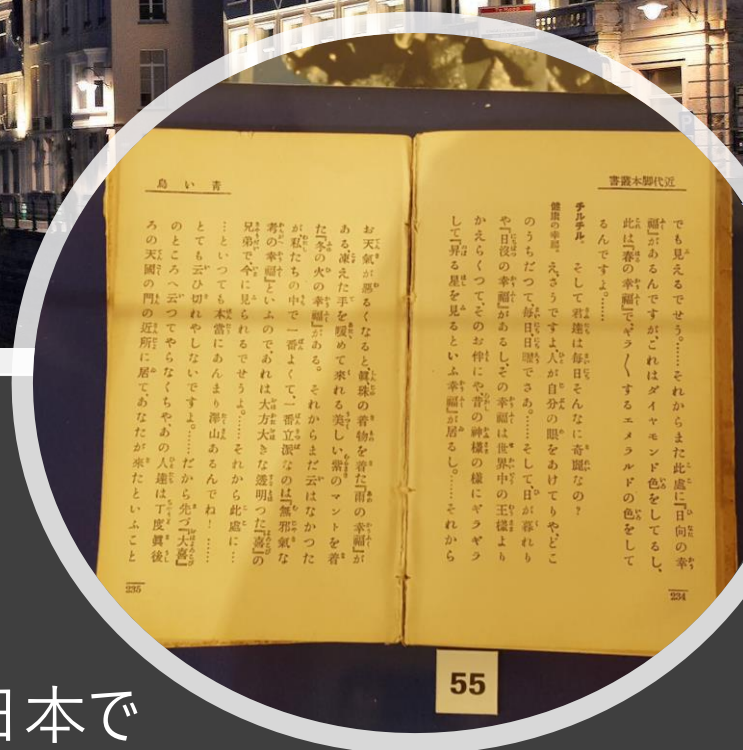 近代脚本叢書
でも見えるでせう。……それからまた此處に『日向の幸
福』があるんですが、これはダイヤモンド色をしてるし、
此は『春の幸福』で、ギラ〳〵するエメラルドの色をして
るんですよ。……
チルチル。 そして君達は毎日そんなに奇麗なの?
健康の幸福。 え、さうですよ、人が自分の眼をあけてりや、どこ
のうちだつて、毎日日曜でさあ。……そして、日が暮れり
や『日沒の幸福』があるし、その幸福は世界中の王樣より
かえらくつて、そのお伴にや、昔の神樣の樣にギラギラ
して『昇る星を見るといふ幸福』が居るし。……それから
234
青い鳥
お天氣が惡るくなると、眞珠の着物を着た『雨の幸福』が
ある、凍えた手を暖めて來れる美しい紫のマントを着
た『冬の火の幸福』がある。 それからまだ云はなかつた
が、私たちの中で一番よくて、一番立派なのは『無邪氣な
考の幸福』といふので、あれは大方大きな透明つた『喜』の
兄弟で、今に見られるでせうよ。……それから此處に…
…といつても本當にあんまり澤山あるんでね!……
とても云ひ切れやしないですよ。……だから先づ『大喜』
のところへ云つてやらなくちや、あの人達は丁度眞後
ろの天國の門の近所に居て、あなたが來たといふこと
235
55
日本で